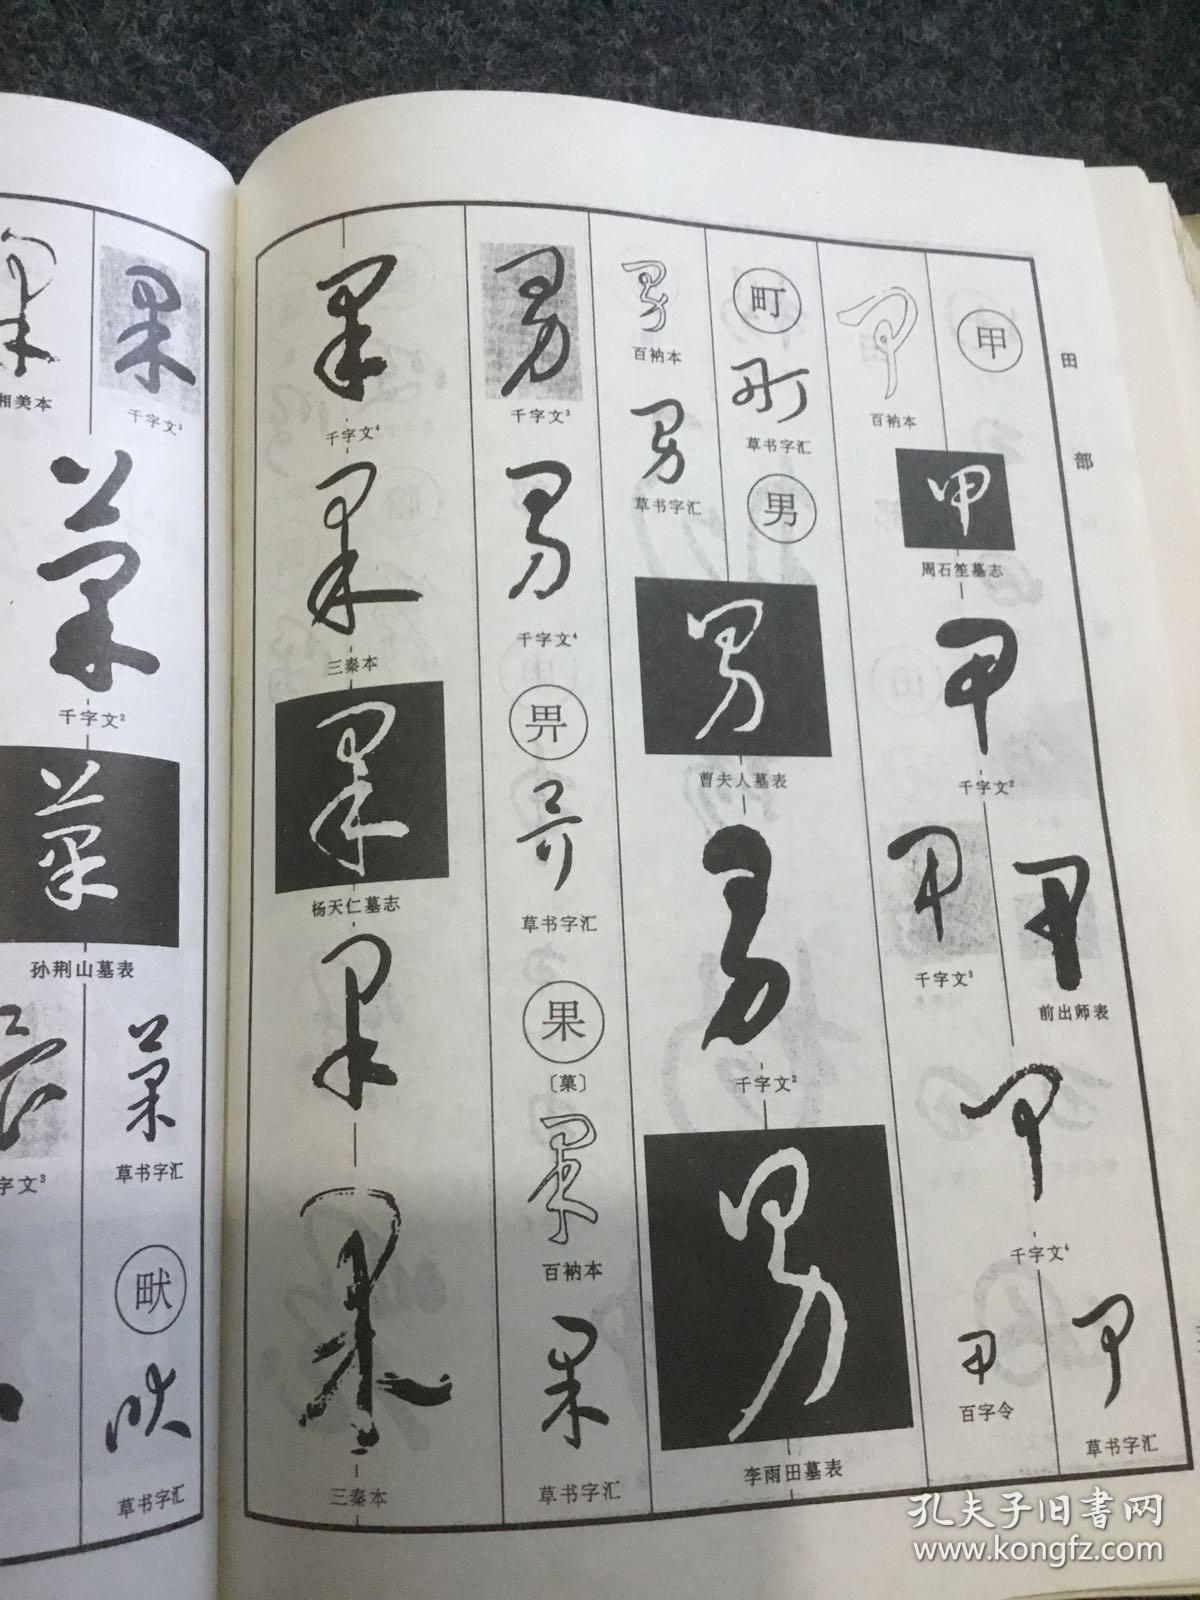 田部
甲
百衲本
周石笙墓志
千字文²
千字文³
前出师表
千字文⁴
百字令
草书字汇
町
草书字汇
男
百衲本
草书字汇
曹夫人墓表
千字文²
李雨田墓表
千字文³
千字文⁴
畀
草书字汇
果
〔菓〕
百衲本
草书字汇
千字文⁴
三秦本
杨天仁墓志
三秦本
千字文³
相美本
千字文²
孙荆山墓表
字文³
草书字汇
畎
草书字汇
孔夫子旧书网
www.kongfz.com